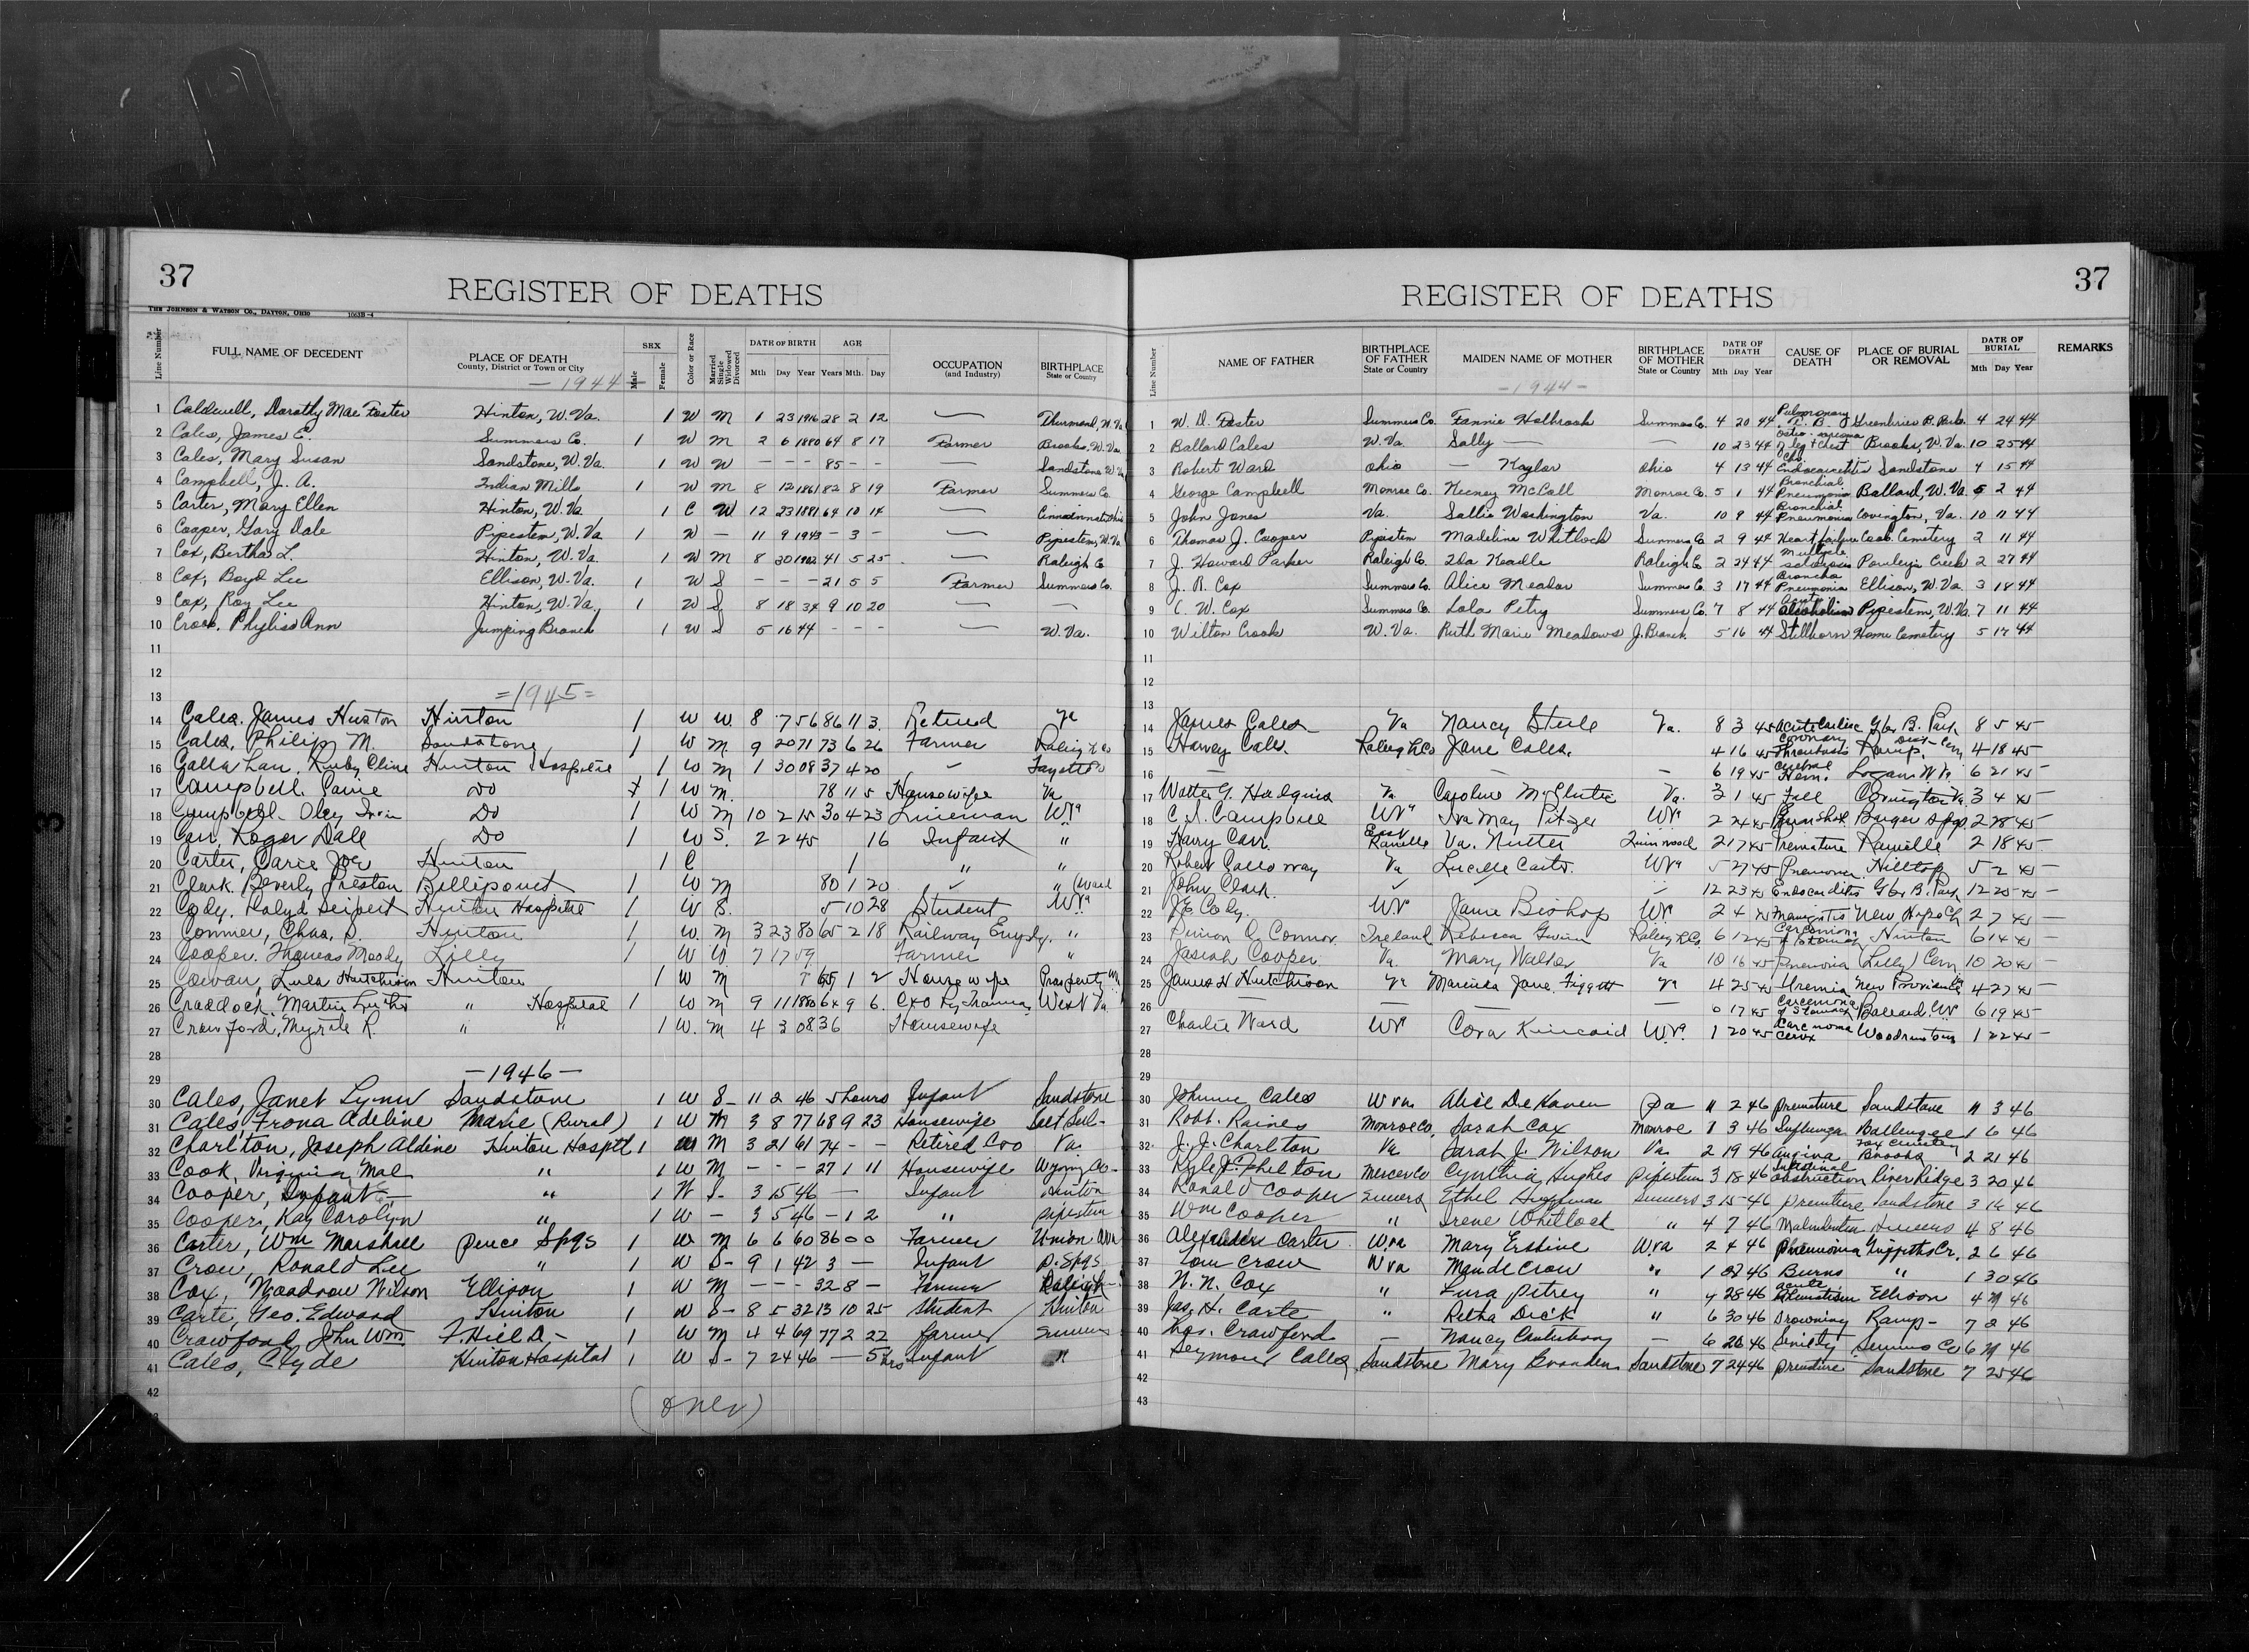 37
REGISTER OF DEATHS
THE JOHNSON & WATSON CO., DAYTON, OHIO 1063B-4
Line Number FULL NAME OF DECEDENT PLACE OF DEATH County, District or Town or City SEX Male Female Color or Race Married Single Widowed Divorced DATE OF BIRTH Mth Day Year AGE Years Mth. Day OCCUPATION (and Industry) BIRTHPLACE State or County
— 1944 —
1 Caldwell, Dorothy Mae Foster Hinton, W. Va. 1 W M 1 23 1916 28 2 12 — Thurmond, W. Va
2 Cales, James E. Summers Co. 1 W M 2 6 1880 64 8 17 Farmer Brooks, W. Va.
3 Cales, Mary Susan Sandstone, W. Va. 1 W W — — — 85 — — — Sandstone W Va
4 Campbell, J. A. Indian Mills 1 W M 8 12 1861 82 8 19 Farmer Summers Co.
5 Carter, Mary Ellen Hinton, W. Va 1 C W 12 23 1881 64 10 14 — Cincinnati Ohio
6 Cooper, Gary Dale Pipestem, W. Va 1 W — 11 9 1943 — 3 — — Pipestem, W. Va
7 Cox, Bertha L. Hinton, W. Va. 1 W M 8 30 1902 41 5 25 — Raleigh Co
8 Cox, Boyd Lee Ellison, W. Va. 1 W S — — — 21 5 5 Farmer Summers Co.
9 Cox, Roy Lee Hinton, W. Va. 1 W S 8 18 34 9 10 20 — —
10 Crook, Phyliss Ann Jumping Branch 1 W S 5 16 44 — — — — W. Va.
11
12
13 = 1945 =
14 Cales, James Huston Hinton 1 W W. 8 7 56 86 11 3 Retired Va
15 Cales, Philip M. Sandstone 1 W M 9 20 71 73 6 26 Farmer Raleigh Co
16 Ruby Cline Hinton Hospital 1 W M 1 30 08 37 4 20 — Fayette Co
17 Campbell, Do 1 W M. 78 11 5 Housewife Va
18 Campbell, Oley Do 1 W M 10 2 15 30 4 23 Lineman W Va
19 Carr, Roger Dale Do 1 W S. 2 2 45 16 Infant "
20 Carter, Joe Hinton 1 C 1 " "
21 Clark, Beverly Preston Bellepoint 1 W M 80 1 20 " (Ward
22 Cody, Seipert Hinton Hospital 1 W S. 5 10 28 Student W Va
23 Conner, Chas. Hinton 1 W. M 3 23 80 65 2 18 Railway "
24 Cooper, Thomas Moody Lilly 1 W W. 7 17 59 Farmer "
25 Cowan, Lula Hutchison Hinton 1 W M 1 2 Housewife Prosperity
26 Craddock, Martin Luther " Hospital 1 W M 9 11 1880 64 9 6. C&O Ry West Va
27 Crawford, Myrtle R. " " 1 W. M 4 3 08 36 Housewife
28
29 — 1946 —
30 Cales, Janet Lynn Sandstone 1 W S— 11 2 46 5 hours Infant Sandstone
31 Cales, Frona Adeline Marie (Rural) 1 W M 3 8 77 68 9 23 Housewife Salt Sul-
32 Charlton, Joseph Aldine Hinton Hosptl 1 W M 3 21 61 74 — — Retired Coo Va.
33 Cook, Virginia Mae " 1 W M — — — 27 1 11 Housewife Wyoming Co-
34 Cooper, Infant — " 1 W S— 3 15 46 — Infant Hinton
35 Cooper, Kay Carolyn " 1 W — 3 5 46 — 1 2 " Pipestem
36 Carter, Wm Marshall Pence Spgs 1 W M 6 6 60 86 0 0 Farmer Union
37 Crow, Ronald Lee " 1 W S— 9 1 42 3 — Infant P. Spgs
38 Cox, Woodrow Wilson Ellison 1 W M — — — 32 8 — Farmer Raleigh
39 Carte, Geo. Edward Hinton 1 W S— 8 5 32 13 10 25 Student Hinton
40 Crawford, John Wm F. Hill D— 1 W M 4 4 69 77 2 22 farmer Summers
41 Cales, Clyde Hinton Hospital 1 W S— 7 24 46 — 5 hrs Infant "
42
(over)
37
REGISTER OF DEATHS
Line Number NAME OF FATHER BIRTHPLACE OF FATHER State or Country MAIDEN NAME OF MOTHER BIRTHPLACE OF MOTHER State or Country DATE OF DEATH Mth Day Year CAUSE OF DEATH PLACE OF BURIAL OR REMOVAL DATE OF BURIAL Mth Day Year REMARKS
— 1944 —
1 W. D. Foster Summers Co. Fannie Holbrook Summers Co. 4 20 44 Pulmonary T. B. Greenbrier B. Park 4 24 44
2 Ballard Cales W. Va. Sally — — 10 23 44 Osteo-sarcoma of leg & chest Brooks, W. Va. 10 25 44
3 Robert Ward Ohio — Kaylor Ohio 4 13 44 Endocarditis Sandstone 4 15 44
4 George Campbell Monroe Co. Keeney McCall Monroe Co. 5 1 44 Bronchial Pneumonia Ballard, W. Va. 5 2 44
5 John Jones Va. Sallie Washington Va. 10 9 44 Bronchial Pneumonia Covington, Va. 10 11 44
6 Thomas J. Cooper Pipestem Madeline Whitlock Summers Co 2 9 44 Heart failure Cook Cemetery 2 11 44
7 J. Howard Parker Raleigh Co. Ida Neadle Raleigh Co 2 24 44 Multiple sclerosis Pauley's Creek 2 27 44
8 J. R. Cox Summers Co. Alice Meador Summers Co. 3 17 44 Broncho Pneumonia Ellison, W. Va. 3 18 44
9 C. W. Cox Summers Co. Lola Petry Summers Co. 7 8 44 Acute Pipestem, W. Va. 7 11 44
10 Wilton Crook W. Va. Ruth Marie Meadows J. Branch 5 16 44 Stillborn Home Cemetery 5 17 44
11
12
13
14 James Cales Va Nancy Steele Va. 8 3 45 Acute Gbr. B. Park 8 5 45 —
15 Harvey Cales. Raleigh Co Jane Cales. 4 16 45 Coronary Thrombosis Ramp. Cem 4 18 45
16 — — 6 19 45 Cerebral Hem. Logan W Va. 6 21 45 —
17 Walter G. Hudgins Va Caroline McClintic Va. 3 1 45 Fall Covington Va. 3 4 45 —
18 C. A. Campbell W Va Iva May Pitzer W Va 2 24 45 Barger Spgs 2 28 45 —
19 Harry Carr East Rainelle Va. Nutter Quinwood 2 17 45 Premature Rainelle 2 18 45 —
20 Robert Galloway Va Lucille Carter W Va 5 27 45 Pneumonia Hilltop 5 2 45 —
21 John Clark 12 23 45 Endocarditis Gbr. B. Park 12 25 45 —
22 J E Cody W Va Janie Bishop W Va 2 4 45 Meningitis New Hope Ch 2 7 45 —
23 O Connor Ireland Rebecca Gwinn Raleigh Co. 6 12 45 Carcinoma of Stomach Hinton 6 14 45 —
24 Josiah Cooper Va. Mary Walker Va 10 16 45 Pneumonia (Lilly) Cem. 10 20 45 —
25 James H Hutchison Va Marinda Jane Figgatt Va 4 25 45 Uremia New Providence 4 27 45 —
26 — — — 6 17 45 Carcinoma of Stomach Ballard. W Va 6 19 45 —
27 Charlie Ward W Va Cora Kincaid W. Va. 1 20 45 Carcinoma Cervix Woodrumtown 1 22 45 —
28
29
30 Johnnie Cales W Va. Alice De Haven Pa 11 2 46 Premature Sandstone 11 3 46
31 Robt. Raines Monroe Co. Sarah Cox Monroe 1 3 46 Influenza Ballengee 1 6 46
32 J. J. Charlton Va Sarah J. Wilson Va. 2 19 46 Angina Fox Cemetery Brooks 2 21 46
33 Kyle J. Shelton Mercer Co Cynthia Hughes Pipestem 3 18 46 Intestinal obstruction River Ridge 3 20 46
34 Ronald Cooper Summers Ethel Huffman Summers 3 15 46 Premature Sandstone 3 16 46
35 Wm Cooper " Irene Whitlock " 4 7 46 4 8 46
36 Alexander Carter W. Va Mary Erskine W. Va 2 4 46 Pneumonia Griffiths Cr. 2 6 46
37 Tom Crow W Va Maude Crow " 1 46 Burns " 1 30 46
38 N. N. Cox " Lura Petrey " 4 28 46 acute Rheumatism Ellison 4 46
39 Jas. H. Carte " Retha Dick " 6 30 46 Drowning Ramp— 7 2 46
40 Crawford — Nancy Canterbury — 6 26 46 Senility Summers Co 6 46
41 Seymour Cales Sandstone Mary Sandstone 7 24 46 premature Sandstone 7 25 46
42
43